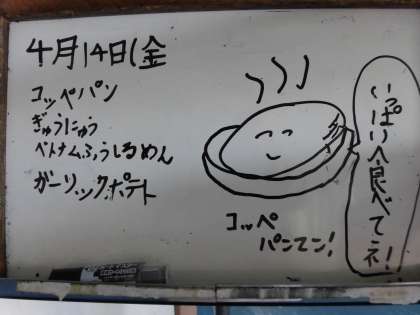 4月14日(金
コッペパン
ぎゅうにゅう
ベトナムふうしるめん
ガーリックポテト
コッペ
パンマン!
いっぱい食べてネ!!